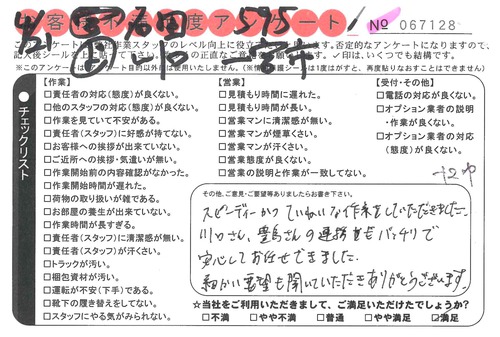 お客様不満足度アンケート
No 067128
記入後シールを上に貼って下さい。
【作業】
□責任者の対応(態度)が良くない。
□他のスタッフの対応(態度)が良くない。
□作業を見ていて不安がある。
□責任者(スタッフ)に好感が持てない。
□お客様への挨拶が出来ていない。
□ご近所への挨拶・気遣いが無い。
□作業開始前の内容確認がなかった。
□作業開始時間が遅れた。
□荷物の取り扱いが雑である。
□お部屋の養生が出来ていない。
□作業時間が長すぎる。
□責任者(スタッフ)に清潔感が無い。
□責任者(スタッフ)が汗くさい。
□トラックが汚い。
□梱包資材が汚い。
□運転が不安(下手)である。
□靴下の履き替えをしてない。
□スタッフにやる気がみられない。
【営業】
□見積もり時間に遅れた。
□見積もり時間が長い。
□営業マンに清潔感が無い。
□営業マンが煙草くさい。
□営業マンが汗くさい。
□営業態度が良くない。
□営業の説明と作業が一致してない。
【受付・その他】
□電話の対応が良くない。
□オプション業者の説明
・作業が良くない。
□オプション業者の対応
(態度)が良くない。
チェックリスト
その他、ご意見・ご要望等ありましたらお書き下さい。
スピーディーかつていねいな作業をしていただきました。
川口さん、豊島さんの連携もバッチリで
安心してお任せできました。
細かい要望も聞いていただきありがとうございます。
☆当社をご利用いただきまして、ご満足いただけたでしょうか?
□不満 □やや不満 □普通 □やや満足 ☑満足